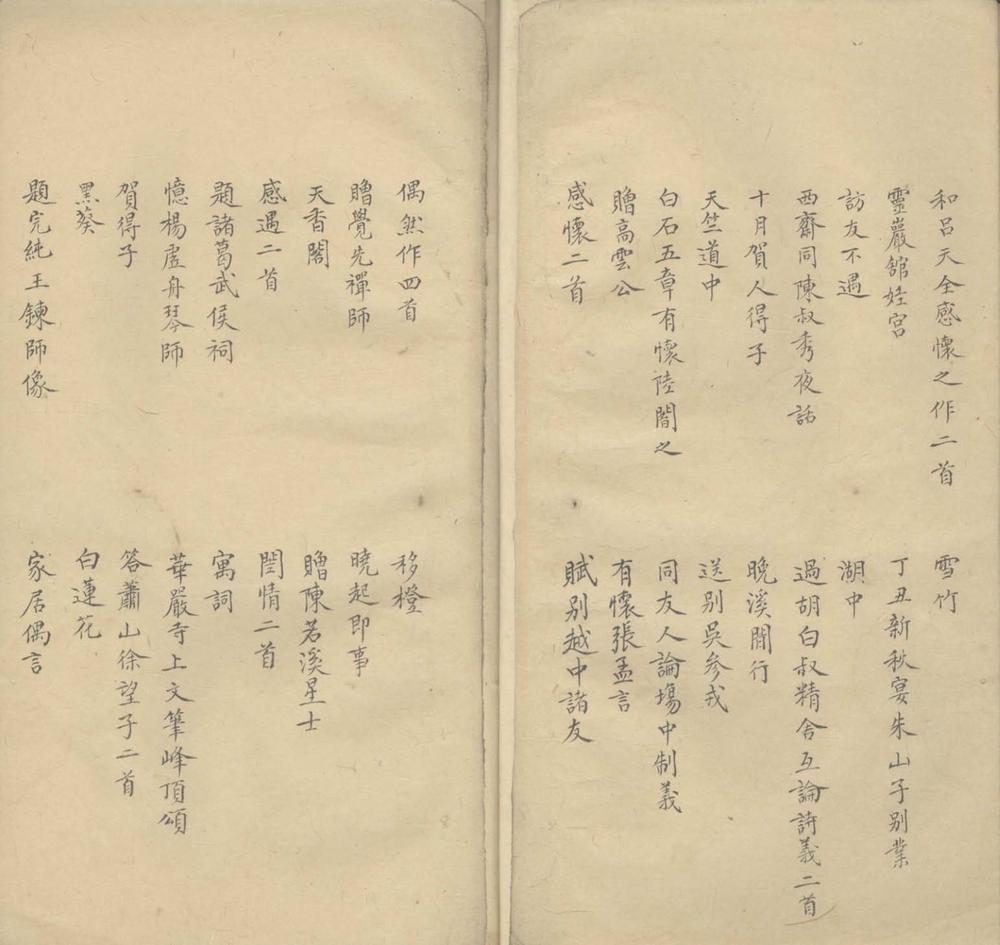 和呂天全感懷之作二首
雪竹
靈巖館娃宮
丁丑新秋宴朱山子别業
訪友不遇
湖中
西齋同陳叔秀夜話
過胡白叔精舍互論詩義二首
十月賀人得子
晚溪閒行
天竺道中
送别吳參戎
白石五章有懷陸闇之
同友人論場中制義
贈高雲公
有懷張孟言
感懷二首
賦别越中諸友
偶然作四首
移橙
贈覺先禪師
曉起即事
天香閣
贈陳若溪星士
感遇二首
閨情二首
題諸葛武侯祠
寓詞
憶楊虛舟琴師
華嚴寺上文筆峰頂頌
賀得子
答蕭山徐望子二首
黑葵
白蓮花
題完純王鍊師像
家居偶言